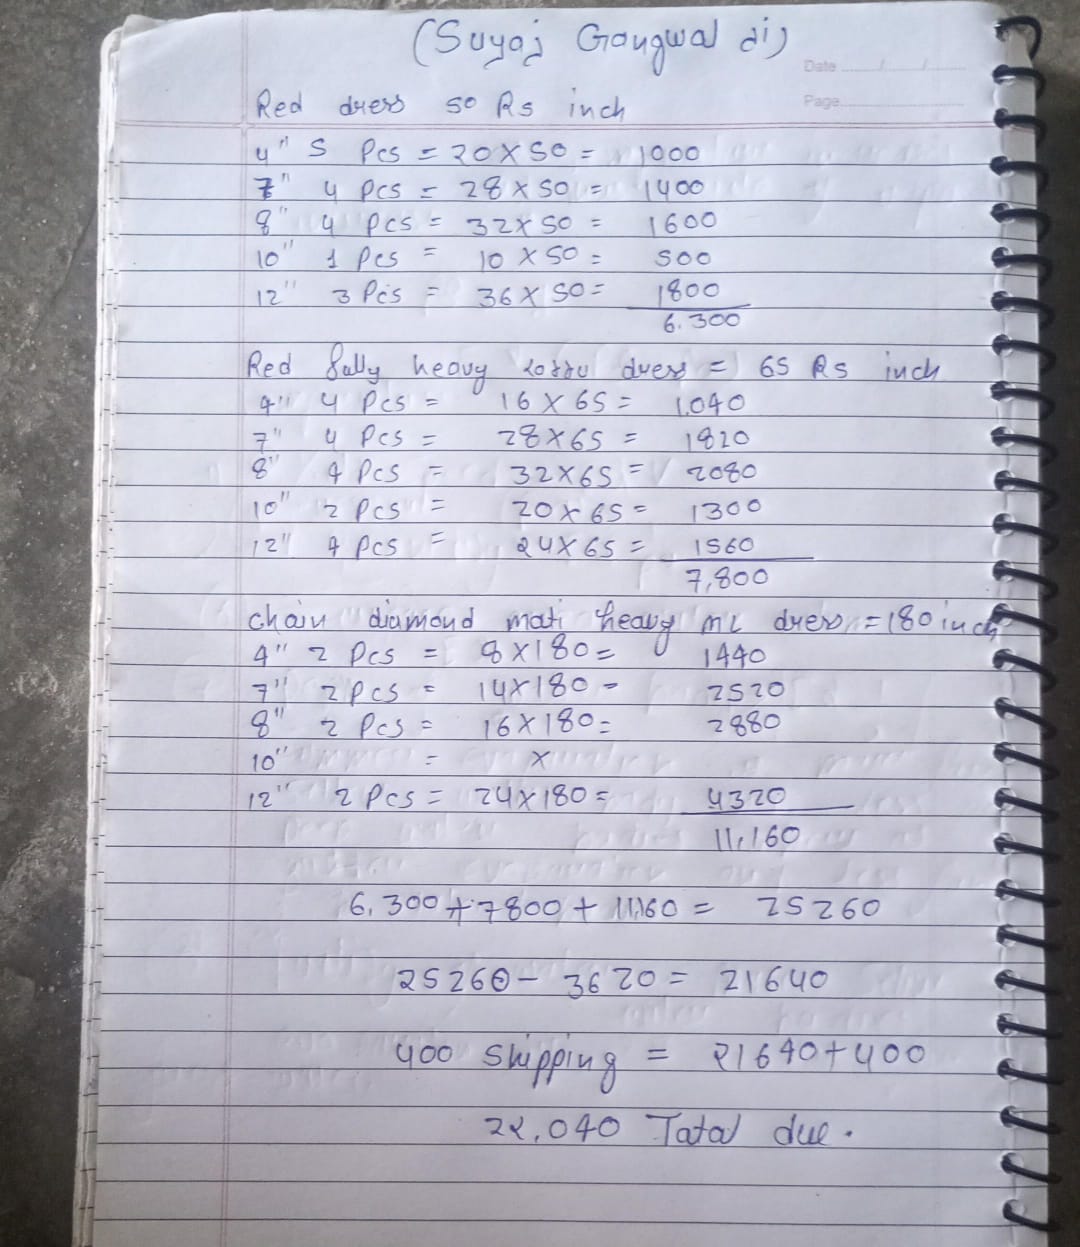 (Suyaj Gangwal di)
Date ....../....../......
Page..................
Red dress 50 Rs inch
4" 5 Pcs = 20 X 50 = 1000
7" 4 Pcs = 28 X 50 = 1400
8" 4 Pcs = 32 X 50 = 1600
10" 1 Pcs = 10 X 50 = 500
12" 3 Pcs = 36 X 50 = 1800
6.300
Red fully heavy dress = 65 Rs inch
4" 4 Pcs = 16 X 65 = 1,040
7" 4 Pcs = 28 X 65 = 1820
8" 4 Pcs = 32 X 65 = 2080
10" 2 Pcs = 20 X 65 = 1300
12" 4 Pcs = 24 X 65 = 1560
7,800
chain diamond moti heavy ML dress = 180 inch
4" 2 Pcs = 8 X 180 = 1440
7" 2 Pcs = 14 X 180 - 2520
8" 2 Pcs = 16 X 180 = 2880
10" = X
12" 2 Pcs = 24 X 180 = 4320
11,160
6.300 + 7800 + 11,160 = 25260
25260 - 3620 = 21640
400 Shipping = 21640 + 400
22,040 Total due.